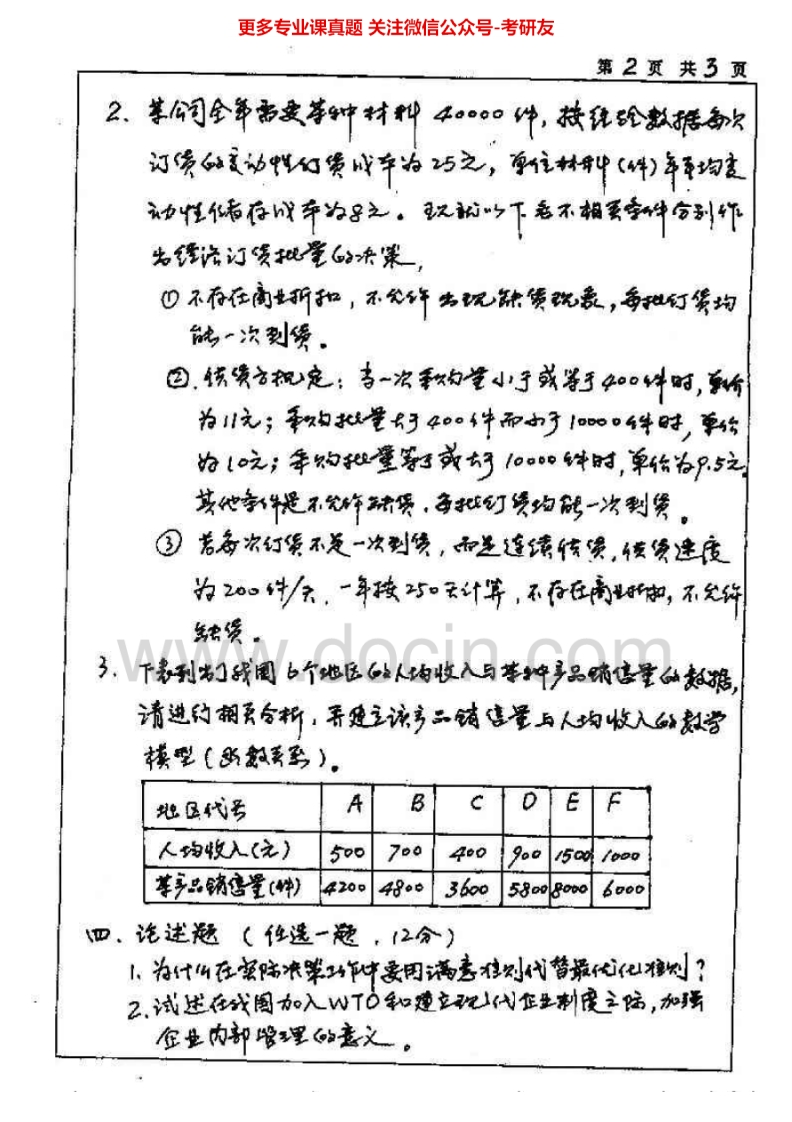 更多专业课真题 关注微信公众号-考研友
第2页 共3页
2、某公司全年需要某种材料40000件，按经验数据每次
订货的变动性订货成本为25元，单位材料(件)年平均变
动性储存成本为8元。现就以下各不相关条件分别作
出经济订货批量的决策，
① 不存在商业折扣，不允许出现缺货现象，每批订货均
能一次到货。
②、供货方规定：当一次采购量小于或等于400件时，单价
为11元；采购批量大于400件而小于10000件时，单价
为10元；采购批量等于或大于10000件时，单价为9.5元，
其他条件是不允许缺货，每批订货均能一次到货。
③ 若每次订货不是一次到货，而是连续供货，供货速度
为200件/天，一年按250天计算，不存在商业折扣，不允许
缺货。
www.docin.com
3、下表列出了我国6个地区的人均收入与某种产品销售量的数据，
请进行相关分析，并建立该产品销售量与人均收入的数学
模型(函数关系)。
地区代号 A B C D E F
人均收入(元) 500 700 400 900 1500 1000
某产品销售量(件) 4200 4800 3600 5800 8000 6000
四、论述题 (任选一题，12分)
1、为什么在实际决策工作中要用满意准则代替最优化准则？
2、试述在我国加入WTO和建立现代企业制度之际，加强
企业内部管理的意义。